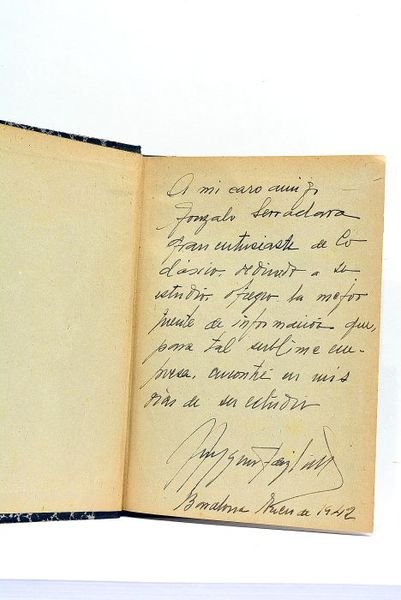 A mi caro amigo
Gonzalo Serraclara
gran entusiaste de lo
clásico, dedicado a su
estudio, ofrezco la mejor
fuente de información que,
para tal sublime em-
presa, encontré en mis
dias de ser estudio
Enero de 1942